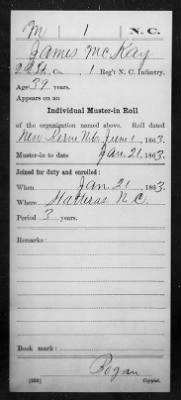 M 1 N. C.
James McKay
Co. 1 Reg't N. C. Infantry.
Age 39 years.
Appears on an
Individual Muster-in Roll
of the organization named above. Roll dated
New Berne N.C. June 1, 1863.
Muster-in to date Jan. 21, 1863.
Joined for duty and enrolled:
When Jan. 21, 1863.
Where Hatteras N.C.
Period 3 years.
Remarks:
Book mark:
Copyist.